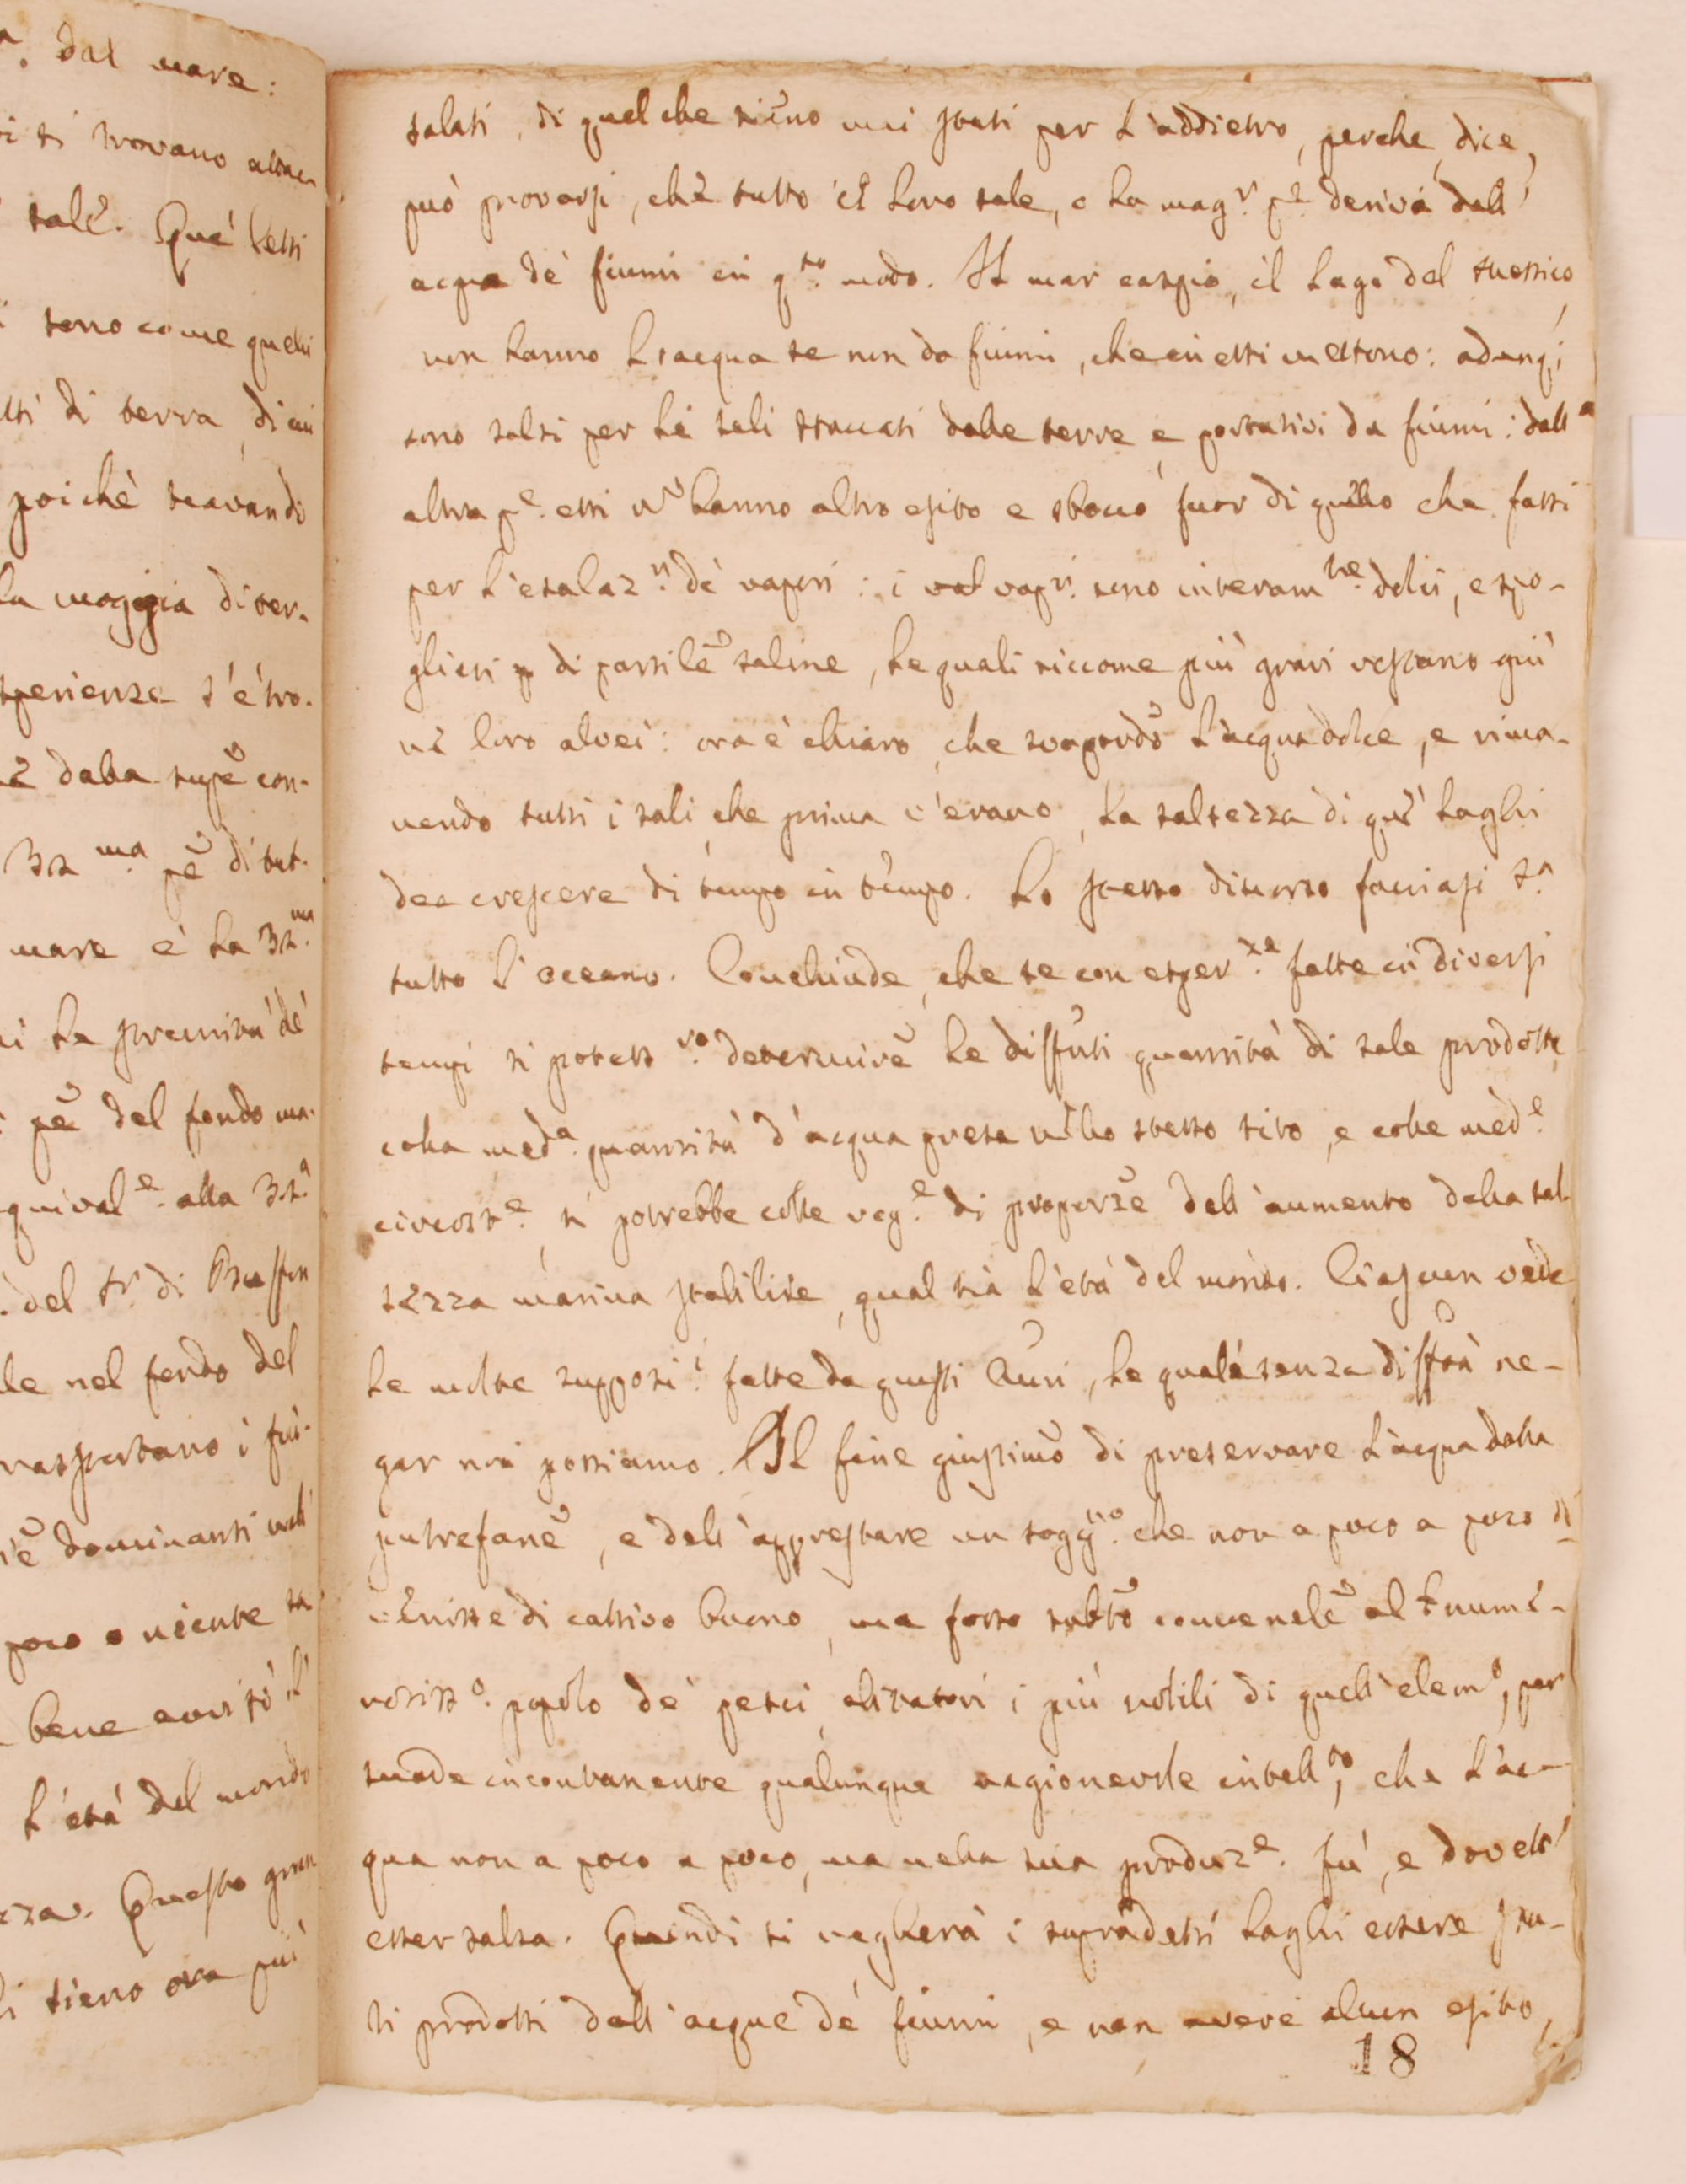 a. dal mare:
si trovano attac-
sale. Que' letti
sono come quelli
di terra, di cui
poichè scavando
la maggia di ter-
sperienza s'è tro-
dalla supē con-
32 ma pē di tut-
mare è la 32.ma
la premita dè
pē del fondo ma-
quival.e alla 32.a
del Sr. di Buffon
le nel fondo del
trasportano i fiu-
dominanti nell'
poco o niente
bene avvisò
l'età del mondo
Questo gran
sieno ora più
salati, di quel che sieno mai stati per l'addietro, perche, dice,
può provarsi, che tutto il loro sale, o la mag.r pe. deriva dall'
acqua de' fiumi in q.to modo. Il mar caspio, il lago del Messico,
non hanno l'acqua se non da fiumi, che in essi mettono: adunq;
sono salsi per li sali staccati dalle terre e portativi da fiumi: dall'
altra pe. essi nō hanno altro esito e sbocco fuor di quello che fassi
per l'esalaz.ni de' vapori: i vapri. sono interam.te dolci, e spo-
gliati di particlē saline, le quali siccome più gravi restano giù
ne' loro alvei: ora è chiaro, che svapordō l'acqua dolce, e rima-
nendo tutti i sali, che prima v'erano, la salsezza di que' laghi
dee crescere di tempo in tempo. Lo stesso discorso facciasi s.a
tutto l'oceano. Conchiude, che se con esper.ze fatte in diversi
tempi si potess.ro determinē le diffnti quantità di sale prodotte
colla med.a quantità d'acqua presa nello stesso sito, e colle med.e
circost.e, si potrebbe colle reg.e di proporze dell'aumento della sal-
sezza marina stabilire, qual sia l'età del mondo. Ciascun vede
le molte supposi.i fatte da questi Auri, le quali senza diffltà ne-
gar noi possiamo. Il fine giustimō di preservare l'acqua dalla
putrefanē, e dell'apprestare un sogg.no che non a poco a poco di-
venisse di cattivo buono, ma fosse subbtō convenelē al numē-
rosiss.o popolo de' pesci, abitatori i più nobili di quell'elem.o, per
suade incontanente qualunque ragionevole intell.to, che l'ac-
qua non a poco a poco, ma nella sua produz.e fù, e dovett'
esser salsa. Quindi si negherà i sopradetti laghi essere sta-
ti prodotti dall'acque dé fiumi, e non avere alcun esito,
18